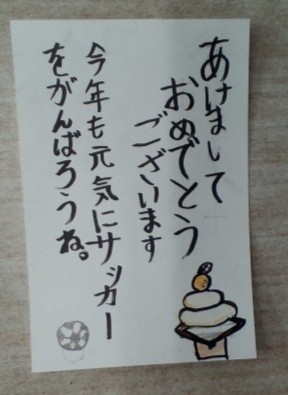 あけまして
おめでとう
ございます
今年も元気にサッカー
をがんばろうね。